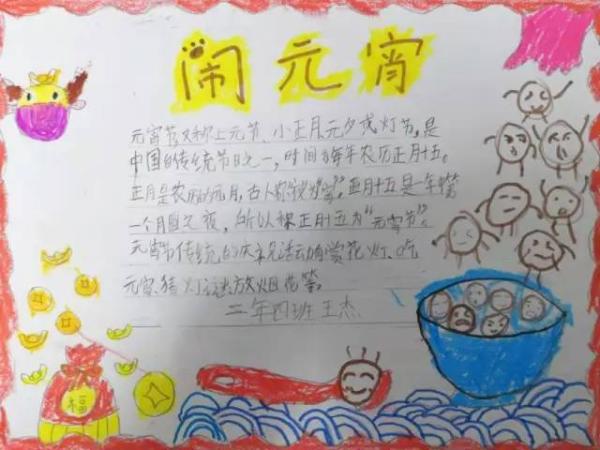 闹元宵
元宵节又称上元节、小正月元夕或灯节，是
中国传统节日之一，时间为每年农历正月十五。
正月是农历的元月，古人称夜为"宵"，正月十五是一年第
一个月圆之夜，所以称正月十五为"元宵节"。
元宵节传统的庆祝活动有赏花灯、吃
元宵、猜灯谜、放烟花等。
二年四班 王杰
福